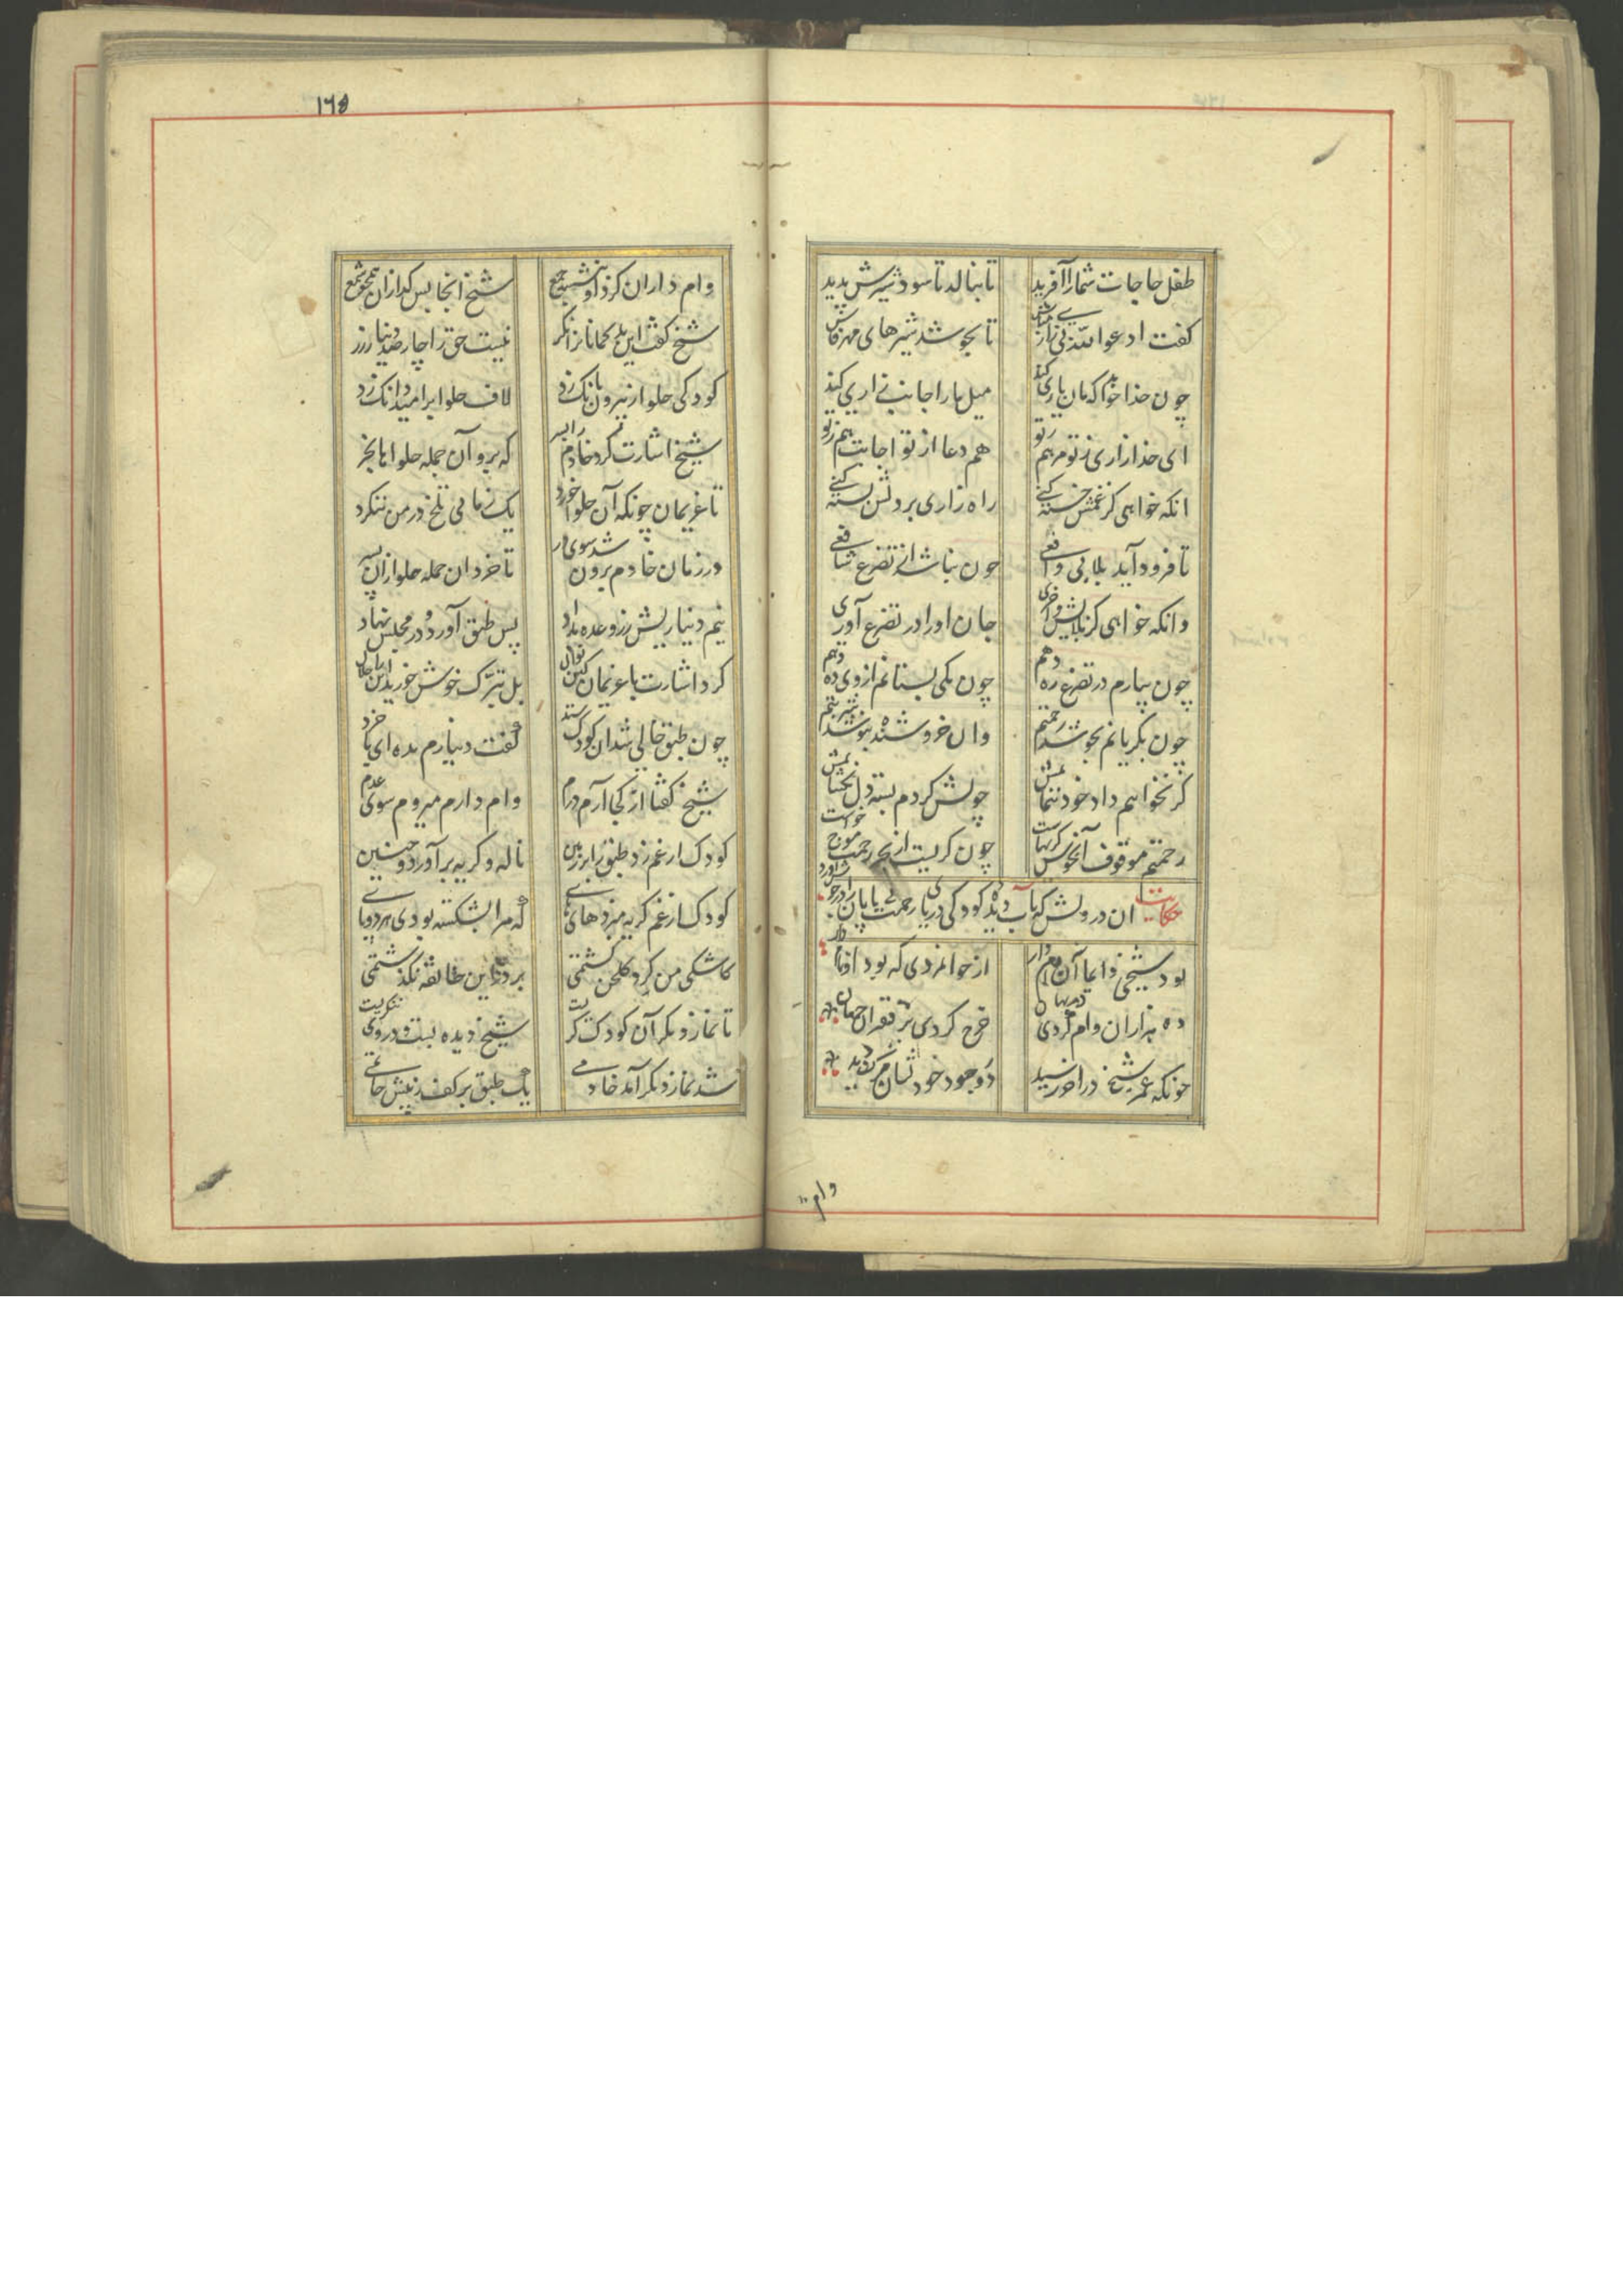 طفل حاجات شمارا آفرید تا بنالد تا سود شیرش پدید
گفت ادعوا الله بی زاری مباش تا بجوشد شیرهای مهرهاش
چون خدا خواهد که مان یاری کند میل مارا جانب زاری کند
ای خدا زاری ز تو مرهم ز تو هم دعا از تو اجابت هم ز تو
انکه خواهی کز غمش خسته کنی راه زاری بر دلش بسته کنی
تا فرود آید بلایی دافعی چون نباشد از تضرع شافعی
وانکه خواهی کز بلایش واخری جان اورا در تضرع آوری
چون بکریانم بجوشد رحمتم وان خروشنده بنوشد نعمتم
کر نخواهم داد خود ننمایمش چونش کردم بسته دل بکشایمش
رحمتم موقوف آنخوش کریهاست چون کریست از بحر رحمت موج خواست
حکایت ان درویش که بآب دیده کودکی دریای رحمت بی پایان را در جوش آورد
بود شیخی دایما آن وام دار از جوانمردی که بود آن نامدار
ده هزاران وام کردی از مهان خرج کردی بر فقیران جهان
چونکه عمر شیخ در آخر رسید در وجود خود نشان مرک دید
وام
١٦٥
وام داران کرد او بنشسته جمع شیخ انجا بس کدازان همچو شمع
شیخ کفت این بدکمانانرا نکر نیست حق را چار صد دینار زر
کودکی حلوا ز بیرون بانک زد لاف حلوا بر امید دانک زد
شیخ اشارت کرد خادم را بسر که برو آن جمله حلوا را بخر
تا غریمان چونکه آن حلوا خورند یک زمانی تلخ در من ننکرند
در زمان خادم برون شد سوی در تا خرد ان جمله حلوا زان پسر
نیم دینارش زر وعده بداد پس طبق آورد و در مجلس نهاد
کرد اشارت با غریمان کین نوال بل تبرک خوش خورید این را حلال
چون طبق خالی شد ان کودک ستد کفت دینارم بده ای با خرد
شیخ کفتا از کجا آرم درم وام دارم میروم سوی عدم
کودک از غم زد طبق را بر زمین ناله و کریه بر آورد و حنین
کودک از غم کریه میزد های های که مرا بشکسته بودی هر دو پای
کاشکی من کرد کلخن کشتمی بر در این خانقه نکذشتمی
تا نماز دیکر آن کودک کریست شیخ دیده بست و در وی ننکریست
شد نماز دیکر آمد خادمی یک طبق بر کف ز پیش حاتمی